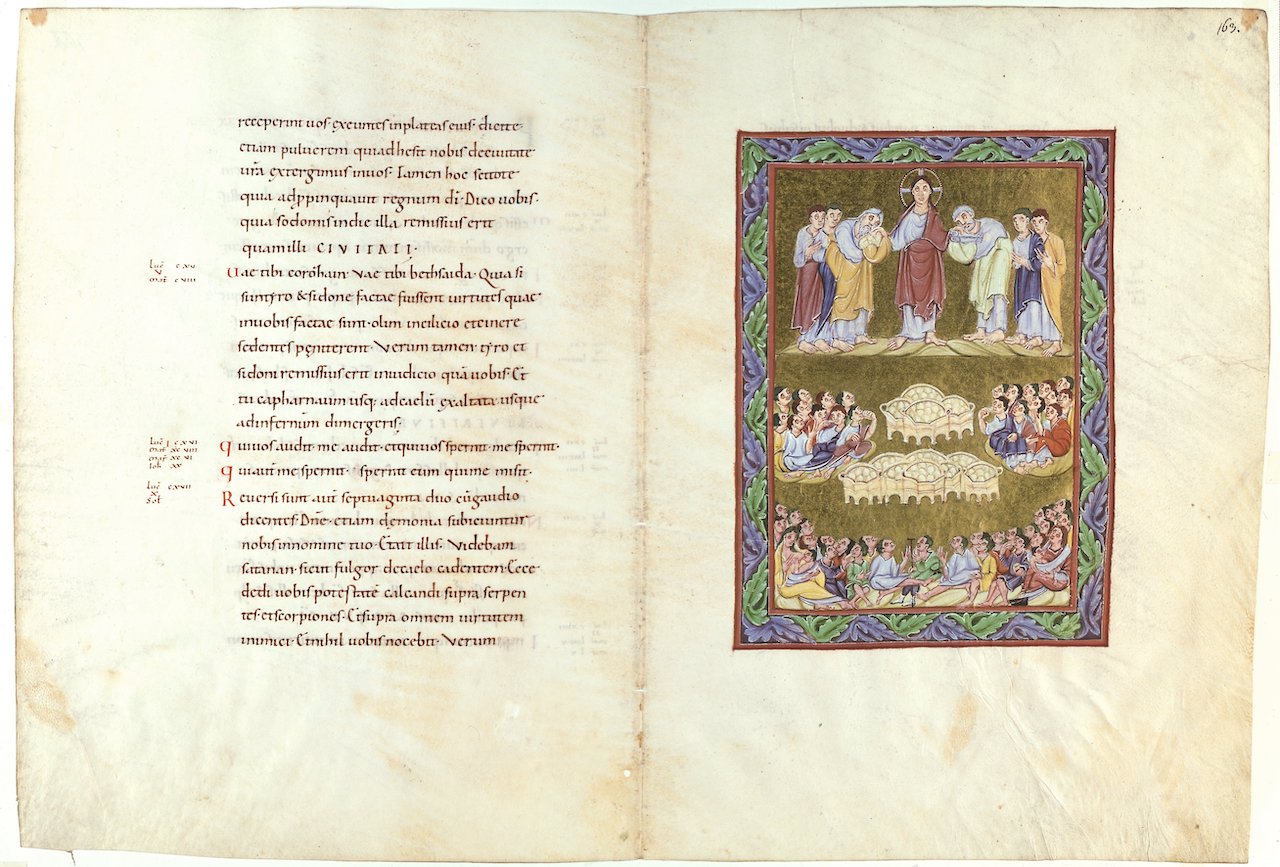 receperint uos exeuntes in plateas eius · dicite ·
etiam puluerem qui adhesit nobis de ciuitate
urã extergimus in uos · Tamen hoc scitote
quia adppinquauit regnum di · Dico uobis ·
quia sodomis in die illa remissius erit
quam illi CIVITATI ·
Uae tibi corozhain · Vae tibi bethsaida · Quia si
in tyro & sidone factae fuissent uirtutes quae
in uobis factae sunt · olim in cilicio et cinere
sedentes peniterent · Verum tamen tyro et
sidoni remissius erit in iudicio quã uobis · Et
tu capharnaum usq; ad caelũ exaltata usque
ad infernum dimergeris ·
Qui uos audit · me audit · et qui uos spernit · me spernit ·
Qui aut me spernit · spernit eum qui me misit ·
Reuersi sunt aut septuaginta duo cũ gaudio
dicentes · Dne · etiam demonia subiciuntur
nobis in nomine tuo · Et ait illis · Videbam
satanan · sicut fulgor de caelo cadentem · Ecce
dedi uobis potestatẽ calcandi supra serpen
tes · et scorpiones · Et supra omnem uirtutem
inimici · Et nihil uobis nocebit · Verum
163.